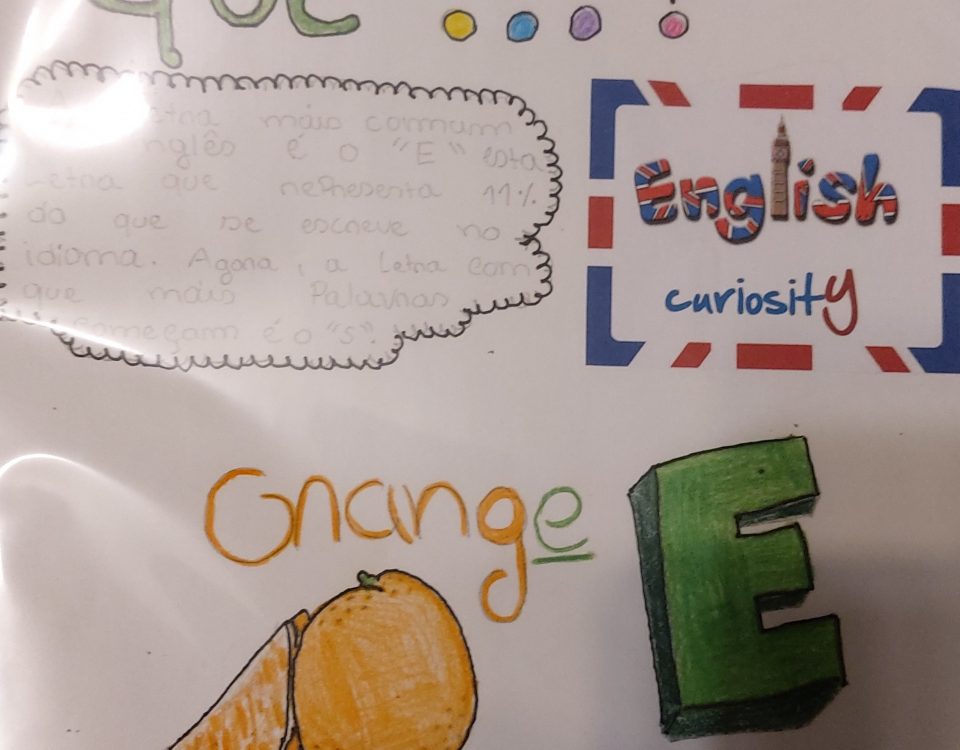 que ... !
letra mais comum
inglês é o "E" esta
Letra que representa 11%.
do que se escreve no
idioma. Agora, a Letra com
que mais Palavras
começam é o "S".
English
curiosity
Orange
E